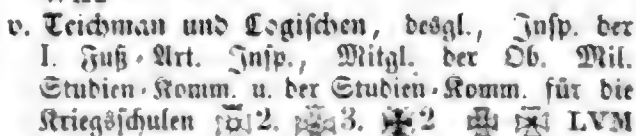 v. Teichman und Logischen, desgl., Insp. der
I. Fuß-Art. Insp., Mitgl. der Ob. Mil.
Studien-Komm. u. der Studien-Komm. für die
Kriegsschulen 2. 3. 2 LVM